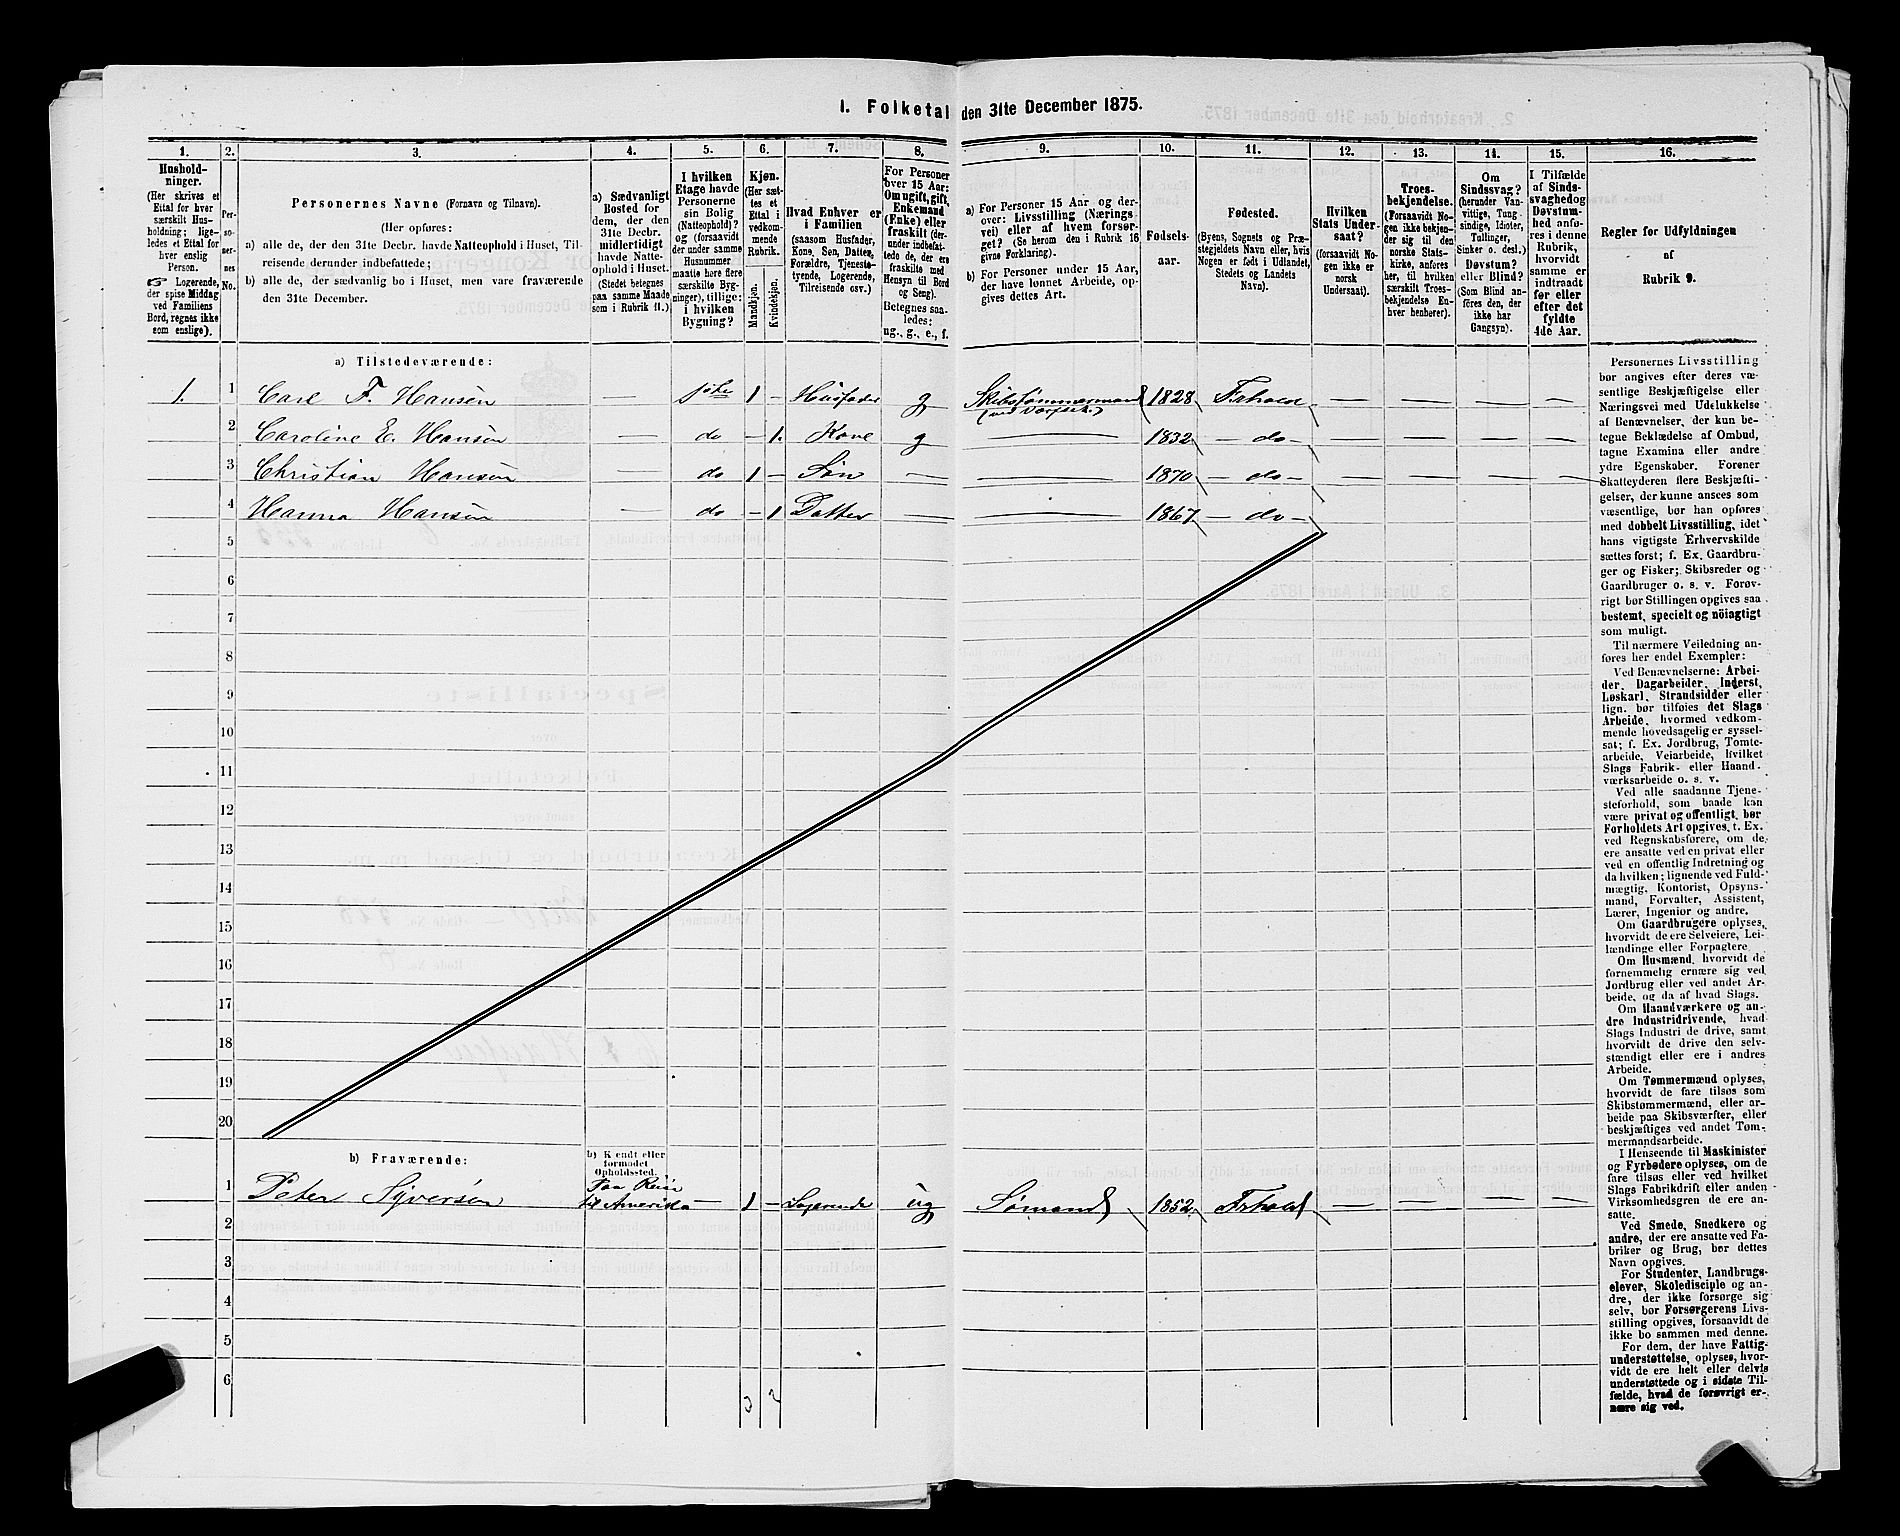 1. Folketal den 31te December 1875.
1. 2. 3. 4. 5. 6. 7. 8. 9. 10. 11. 12. 13. 14. 15. 16.
Hushold-
ninger.
(Her skrives et
Ettal for hver
særskilt Hus-
holdning; lige-
ledes et Ettal for
hver enslig
Person.
☞ Logerende,
der spise Middag
ved Familiens
Bord, regnes ikke
som enslige).
Per-
so-
ner-
nes
No.
Personernes Navne (Fornavn og Tilnavn).
(Her opføres:
a) alle de, der den 31te Decbr. havde Natteophold i Huset, Til-
reisende derunder indbefattede;
b) alle de, der sædvanlig bo i Huset, men vare fraværende
den 31te December.
a) Sædvanligt
Bosted for
dem, der den
31te Decbr.
midlertidigt
havde Natte-
ophold i Huset.
(Stedet betegnes
paa samme Maade
som i Rubrik 11.)
I hvilken
Etage havde
Personerne
sin Bolig
(Natteophold)?
og (forsaavidt
der under samme
Husnummer
maatte høre flere
særskilte Byg-
ninger), tillige:
i hvilken
Bygning?
Kjøn.
(Her sæt-
tes et
Ettal i
vedkom-
mende
Rubrik.
Mandkjøn.
Kvindekjøn.
Hvad Enhver er
i Familien
(saasom Husfader,
Kone, Søn, Datter,
Forældre, Tjeneste-
tyende, Logerende,
Tilreisende osv.)
For Personer
over 15 Aar:
Om ugift, gift,
Enkemand
(Enke) eller
fraskilt (der-
under indbefat-
tede de, der ere
fraskilte med
Hensyn til Bord
og Seng).
Betegnes saa-
ledes:
ug., g., e., f.
a) For Personer 15 Aar og der-
over: Livsstilling (Nærings-
vei) eller af hvem forsør-
get? (Se herom den i Rubrik 16
givne Forklaring).
b) For Personer under 15 Aar,
der have lønnet Arbeide, op-
gives dettes Art.
Fødsels-
aar.
Fødested.
(Byens, Sognets og Præ-
stegjeldets Navn eller, hvis
Nogen er født i Udlandet,
Stedets og Landets
Navn).
Hvilken
Stats Under-
saat?
(forsaavidt No-
gen ikke er
norsk
Undersaat).
Troes-
bekjendelse.
(Forsaavidt No-
gen ikke bekjen-
der sig til den
norske Stats-
kirke, anføres
her, til hvilken
særskilt Troes-
bekjendelse En-
hver henhører).
Om
Sindssvag?
(herunder Van-
vittige, Tung-
sindige, Idioter,
Tullinger,
Sinker o. desl.)
Døvstum?
eller Blind?
(Som Blind an-
føres den, der
ikke har
Gangsyn).
I Tilfælde
af Sinds-
svaghed og
Døvstum-
hed anfø-
res i denne
Rubrik,
hvorvidt
samme er
indtraadt
før eller
efter det
fyldte
4de Aar.
Regler for Udfyldningen
af
Rubrik 9.
a) Tilstedeværende:
1. 1 Carl F. Hansen — 1ste 1 – Husfader g Skibstømmermand 1828 Frhald — — — —
2 Caroline E. Hansen — do – 1. Kone g — 1832 – do – — — — —
3 Christian Hansen — do 1 – Søn — — 1870 – do – — — — —
4 Hanna Hansen — do – 1 Datter — — 1867 – do –
5
6
7
8
9
10
11
12
13
14
15
16
17
18
19
20
b) Fraværende:
b) Kjendt eller
formodet
Opholdssted.
1 Peter Syversen Paa Reise
til Amerika — 1 – Logerende ug Sømand 1852 Frhald — — — —
2
3
4
5
6
3 2
Personernes Livsstilling
bør angives efter deres væ-
sentlige Beskjæftigelse eller
Næringsvei med Udelukkelse
af Benævnelser, der kun be-
tegne Beklædelse af Ombud,
tagne Examina eller andre
ydre Egenskaber. Forener
Skatteyderen flere Beskjæfti-
gelser, der kunne ansees som
væsentlige, bør han opføres
med dobbelt Livsstilling, idet
hans vigtigste Erhvervskilde
sættes først; f. Ex. Gaardbru-
ger og Fisker; Skibsreder og
Gaardbruger o. s. v. Forøv-
rigt bør Stillingen opgives saa
bestemt, specielt og nöiagtigt
som muligt.
Til nærmere Veiledning an-
føres her endel Exempler:
Ved Benævnelserne: Arbei-
der, Dagarbeider, Inderst,
Løskarl, Strandsidder eller
lign. bør tilføies det Slags
Arbeide, hvormed vedkom-
mende hovedsagelig er syssel-
sat; f. Ex. Jordbrug, Tomte-
arbeide, Veiarbeide, hvilket
Slags Fabrik- eller Haand-
værksarbeide o. s. v.
Ved alle saadanne Tjene-
steforhold, som baade kan
være privat og offentligt, bør
Forholdets Art opgives, t. Ex.
ved Regnskabsførere, om de
ere ansatte ved en privat eller
ved en offentlig Indretning og
da hvilken; lignende ved Fuld-
mægtig, Kontorist, Opsyns-
mand, Forvalter, Assistent,
Lærer, Ingeniør og andre.
Om Gaardbrugere oplyses,
hvorvidt de ere Selveiere, Lei-
lændinge eller Forpagtere.
Om Husmænd, hvorvidt de
fornemmelig ernære sig ved
Jordbrug eller ved andet Ar-
beide, og da af hvad Slags.
Om Haandværkere og an-
dre Industridrivende, hvad
Slags Industri de drive, samt
hvorvidt de drive den selv-
stændigt eller ere i andres
Arbeide.
Om Tømmermænd oplyses,
hvorvidt de fare tilsøs som
Skibstømmermænd, eller ar-
beide paa Skibsværfter, eller
beskjæftiges ved andet Tøm-
mermandsarbeide.
I Henseende til Maskinister
og Fyrbødere oplyses, om de
fare tilsøs eller ved hvilket
Slags Fabrikdrift eller anden
Virksomhedsgren de ere an-
satte.
Ved Smede, Snedkere og
andre, der ere ansatte ved Fa-
briker og Brug, bør dettes
Navn opgives.
For Studenter, Landbrugs-
elever, Skoledisciple og an-
dre, der ikke forsørge sig
selv, bør Forsørgerens Livs-
stilling opgives, forsaavidt de
ikke bo sammen med denne.
For dem, der have Fattig-
understøttelse, oplyses, hvor-
vidt de ere helt eller delvis
understøttede og i sidste Til-
fælde, hvad de forøvrigt er-
nære sig ved.